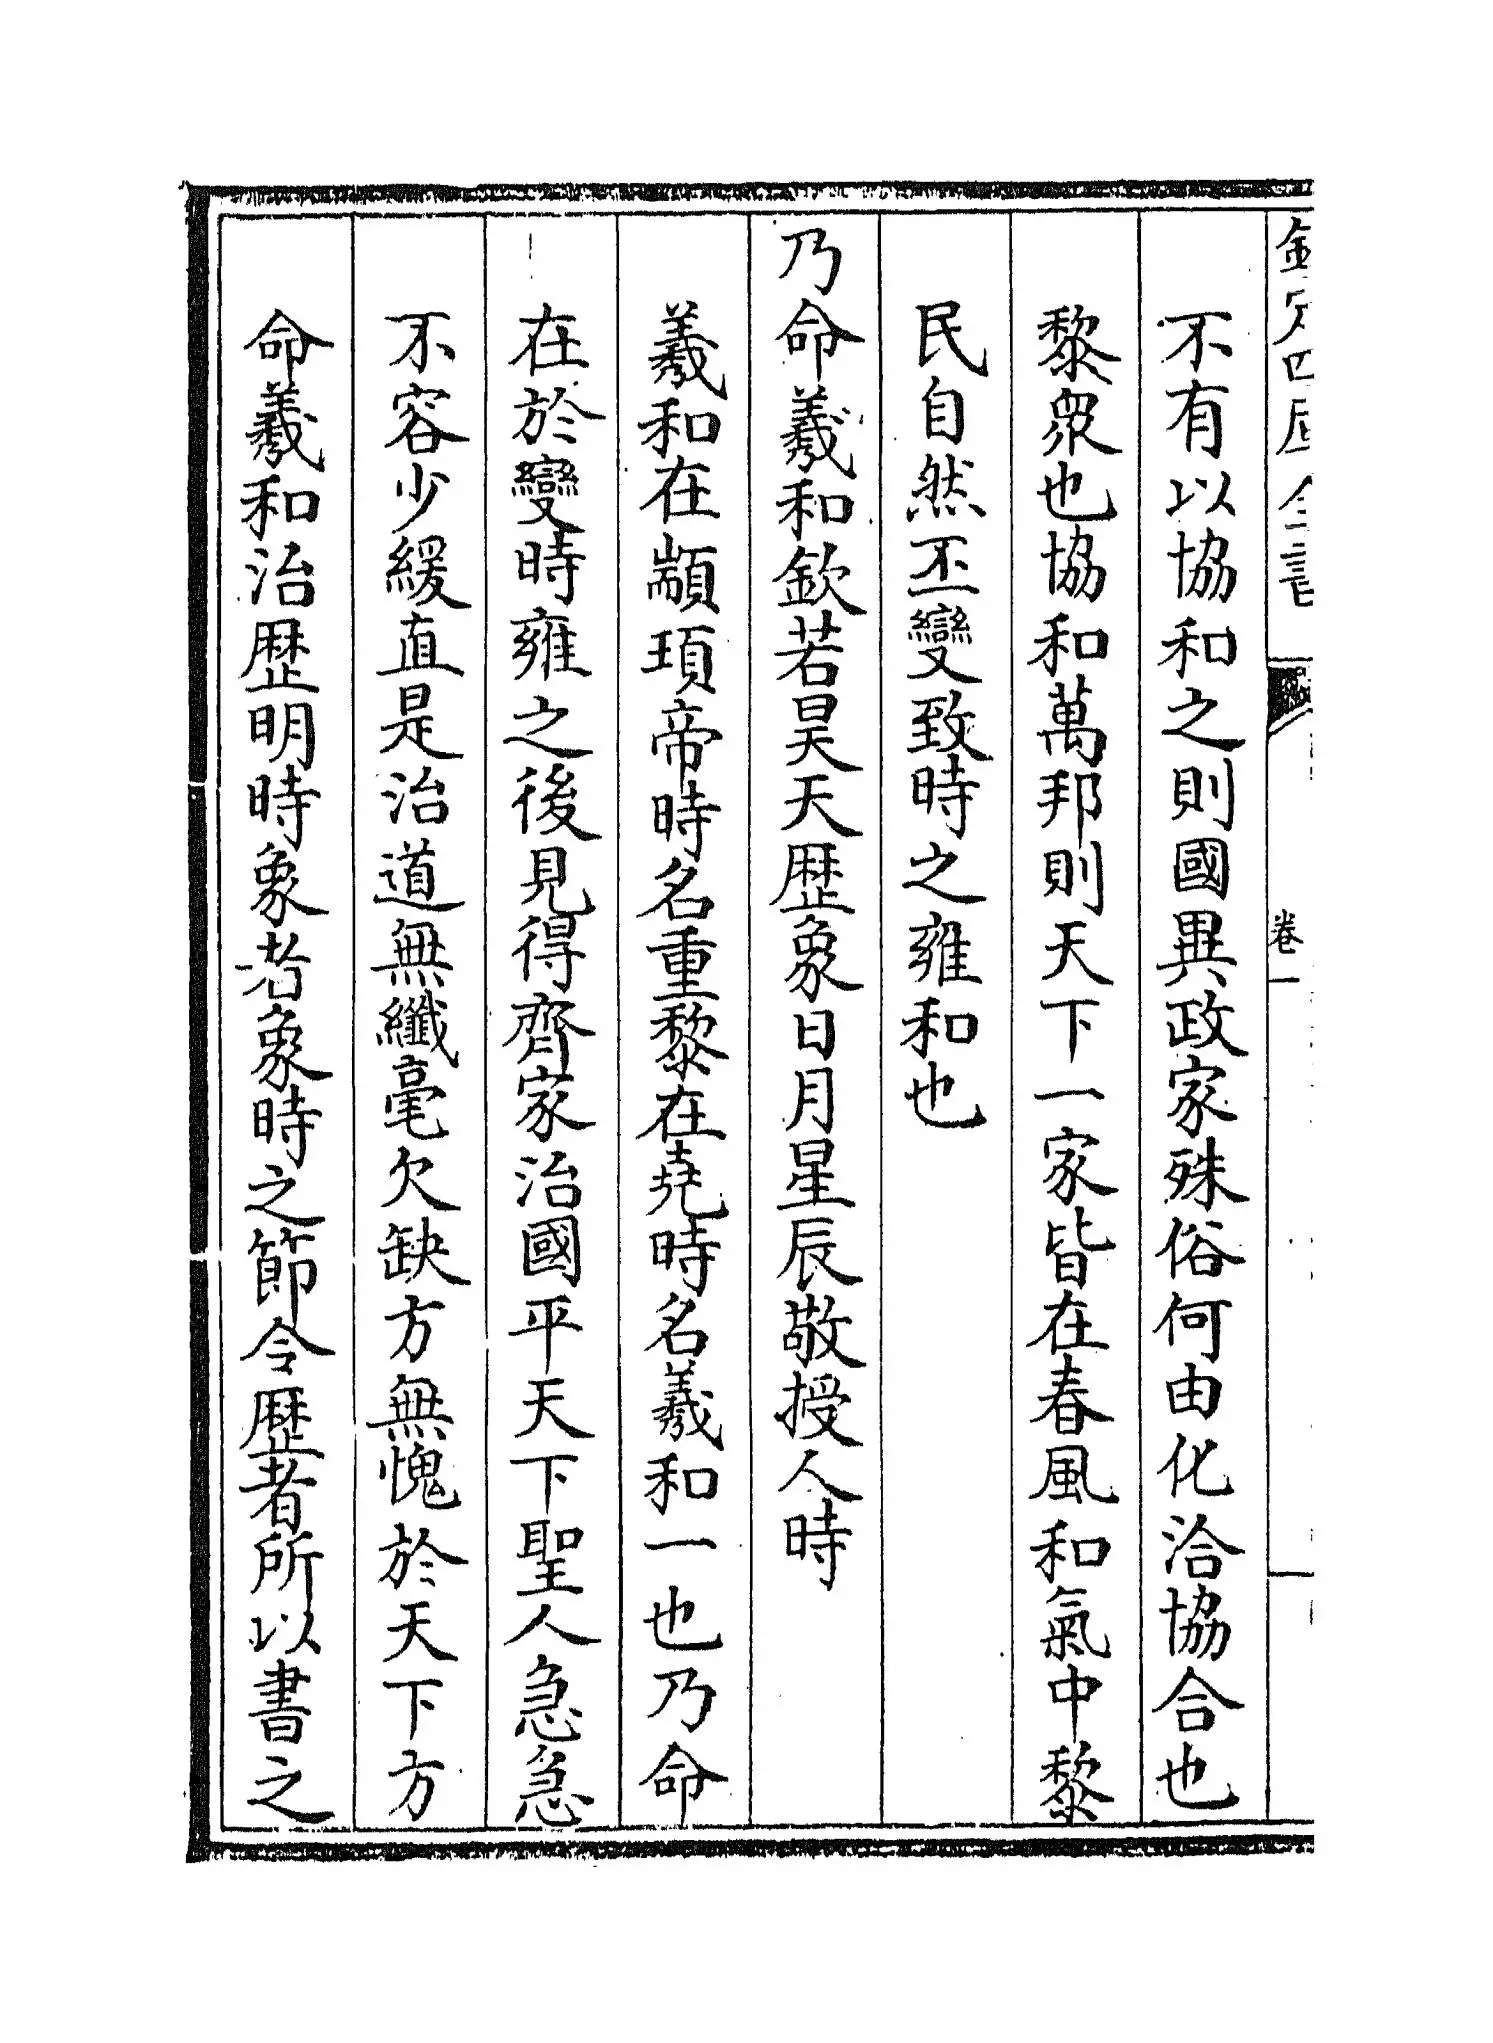 欽定四庫全書
卷一
不有以協和之則國異政家殊俗何由化洽協合也
黎衆也協和萬邦則天下一家皆在春風和氣中黎
民自然丕變致時之雍和也
乃命羲和欽若昊天歴象日月星辰敬授人時
羲和在顓頊帝時名重黎在堯時名羲和一也乃命
在於變時雍之後見得齊家治國平天下聖人急急
不容少緩直是治道無纖毫欠缺方無愧於天下方
命羲和治歴明時象者象時之節令歴者所以書之